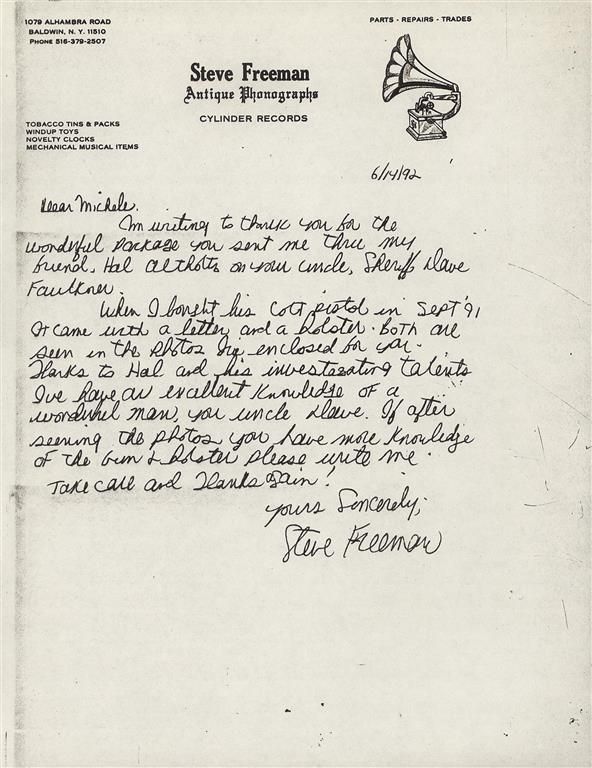 1079 ALHAMBRA ROAD
BALDWIN, N. Y. 11510
PHONE 516-379-2507
PARTS - REPAIRS - TRADES
Steve Freeman
Antique Phonographs
CYLINDER RECORDS
TOBACCO TINS & PACKS
WINDUP TOYS
NOVELTY CLOCKS
MECHANICAL MUSICAL ITEMS
6/14/92
Dear Michele,
I'm writing to thank you for the
wonderful package you sent me thru my
friend, Hal on your uncle, Sheriff Dave
Faulkner.
When I bought his Colt pistol in Sept '91
It came with a letter and a holster. Both are
seen in the photos I've enclosed for you.
Thanks to Hal and his investagating talents
I've have an excellent knowledge of a
wonderful man, you uncle Dave. If after
seening the photos you have more knowledge
of the Gun & holster please write me.
Take care and Thanks again!
Yours Sincerely,
Steve Freeman